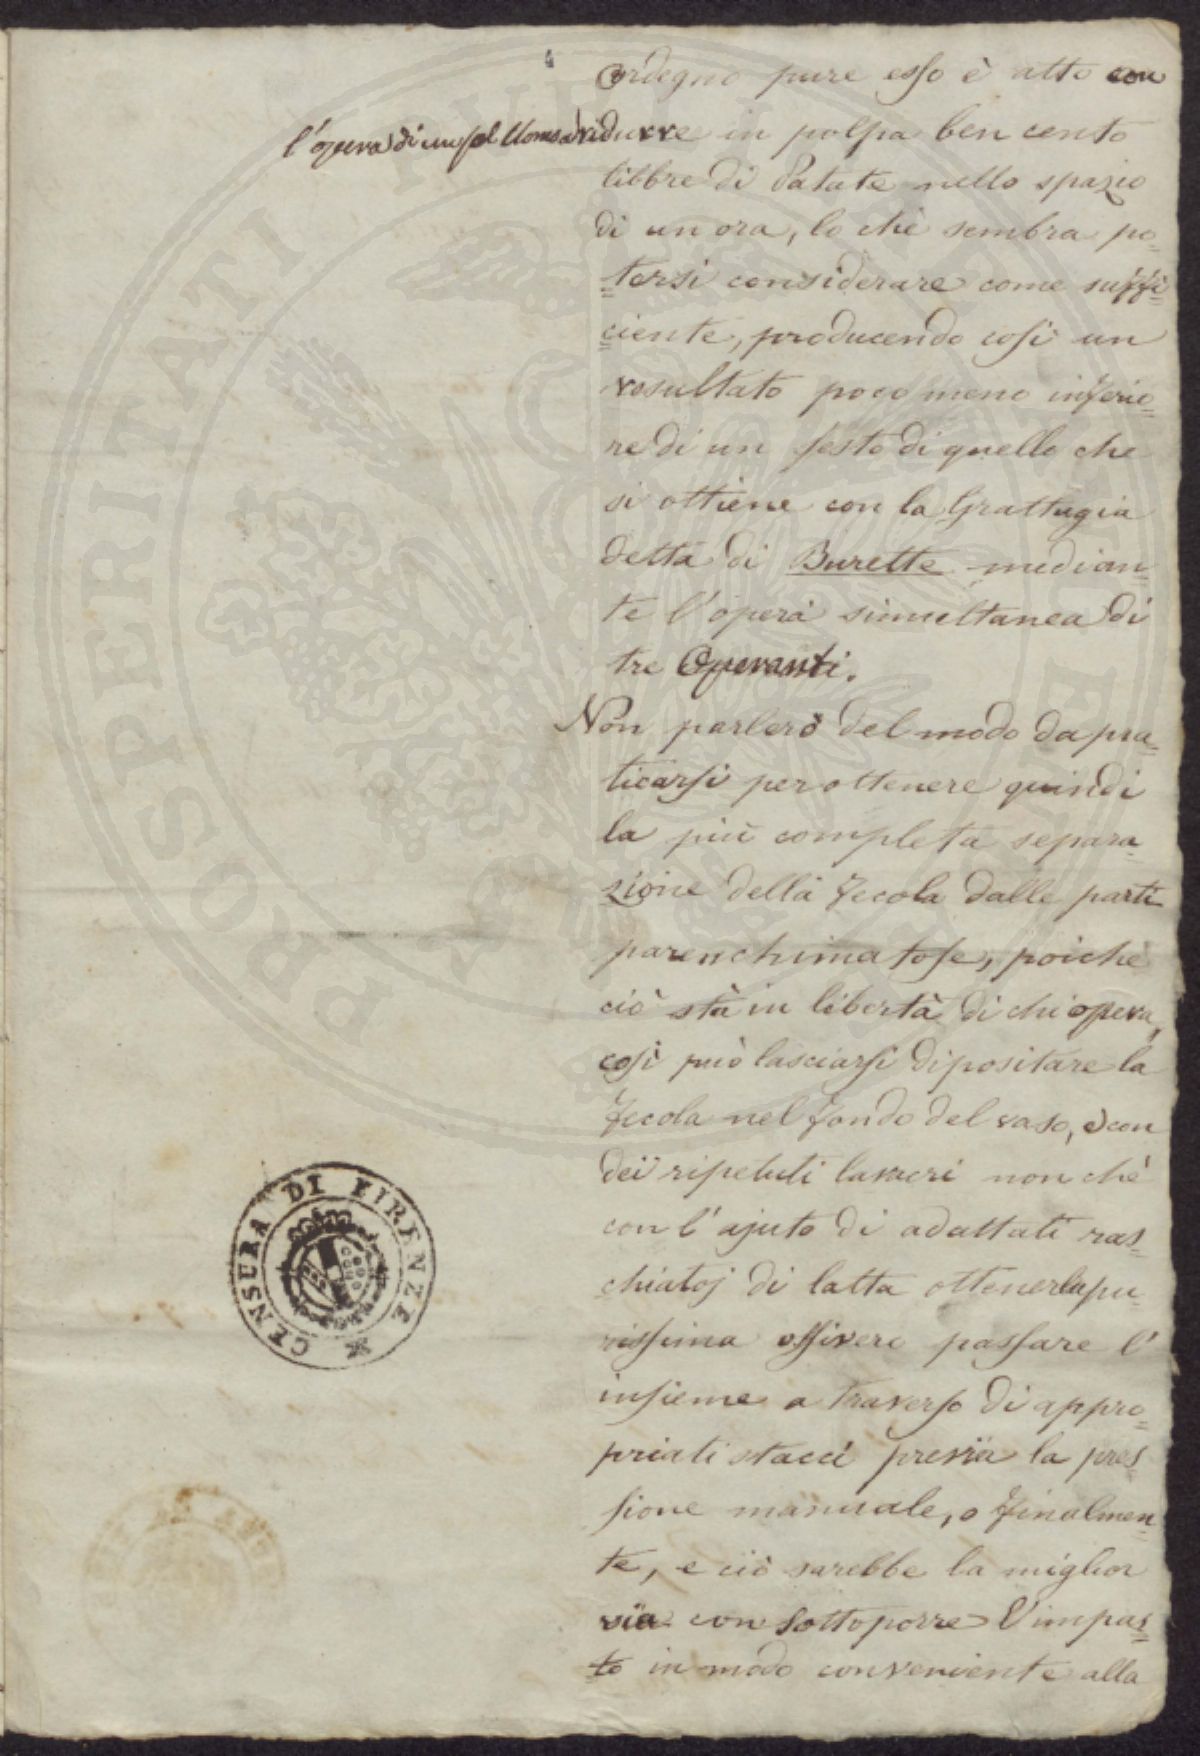 Ordegno pure esso è atto con
l'opera di un sol Uomo a ridurre in polpa ben cento
libbre di Patate nello spazio
di un ora, lo chè sembra po=
=tersi considerare come suffi=
=ciente, producendo così un
resultato poco meno inferio=
re di un sesto di quello che
si ottiene con la Grattugia
detta di Burette median=
te l'opera simultanea di
tre Operanti.
Non parlerò del modo da pra=
ticarsi per ottenere quindi
la più completa separa=
zione della fecola dalle parti
parenchimatose, poichè
ciò stà in libertà di chi opera,
così può lasciarsi dipositare la
fecola nel fondo del vaso, e con
dei ripetuti lavacri non chè
con l'ajuto di adattati ras=
chiatoj di latta ottenerla pu=
rissima ossivero passare l'
insieme a traverso di appro=
priati stacci previa la pres=
sione manuale, o finalmen=
te, e ciò sarebbe la miglior
via con sottoporre l'impas=
to in modo conveniente alla
CENSURA DI FIRENZE
PROSPERITATI